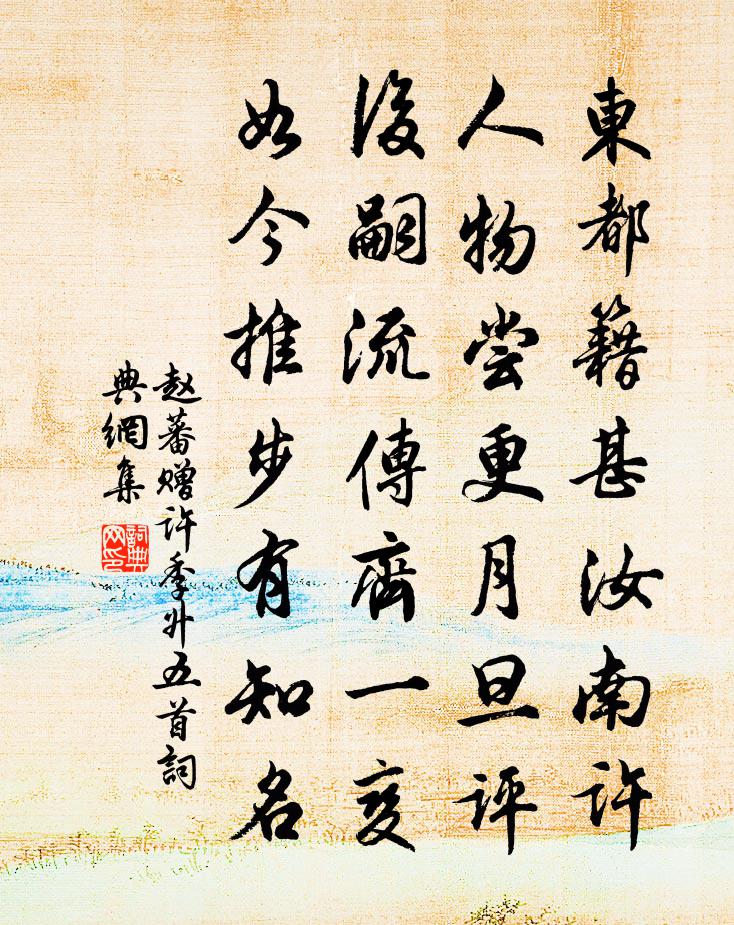 東都籍甚汝南許
人物尝更月旦評
後嗣流傳齊一变
如今推步有知名
赵蕃赠许季升五首詞
典網集
詞典
网印